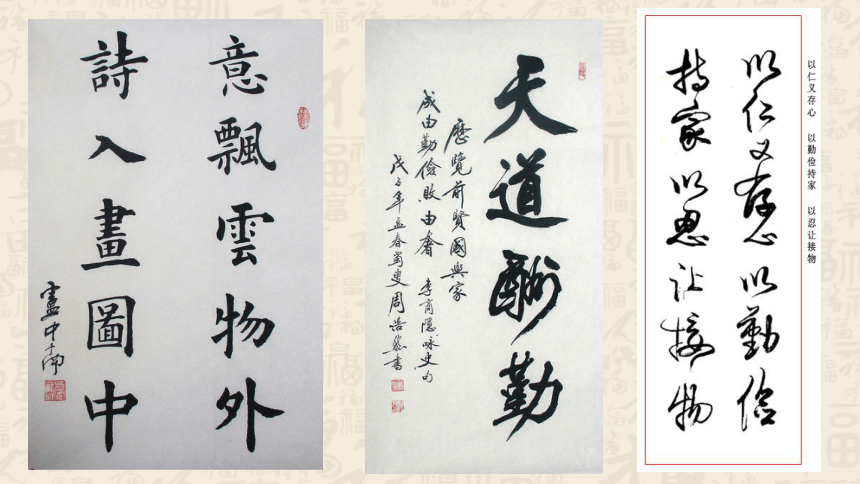 意飄雲物外
詩入畫圖中
天道酬勤
歷覽前賢國與家
成由勤儉敗由奢 李商隱咏史句
戊子年孟春蜀叟周浩然書
以仁义存心以勤俭
持家以忍让接物
以仁义存心 以勤俭持家 以忍让接物